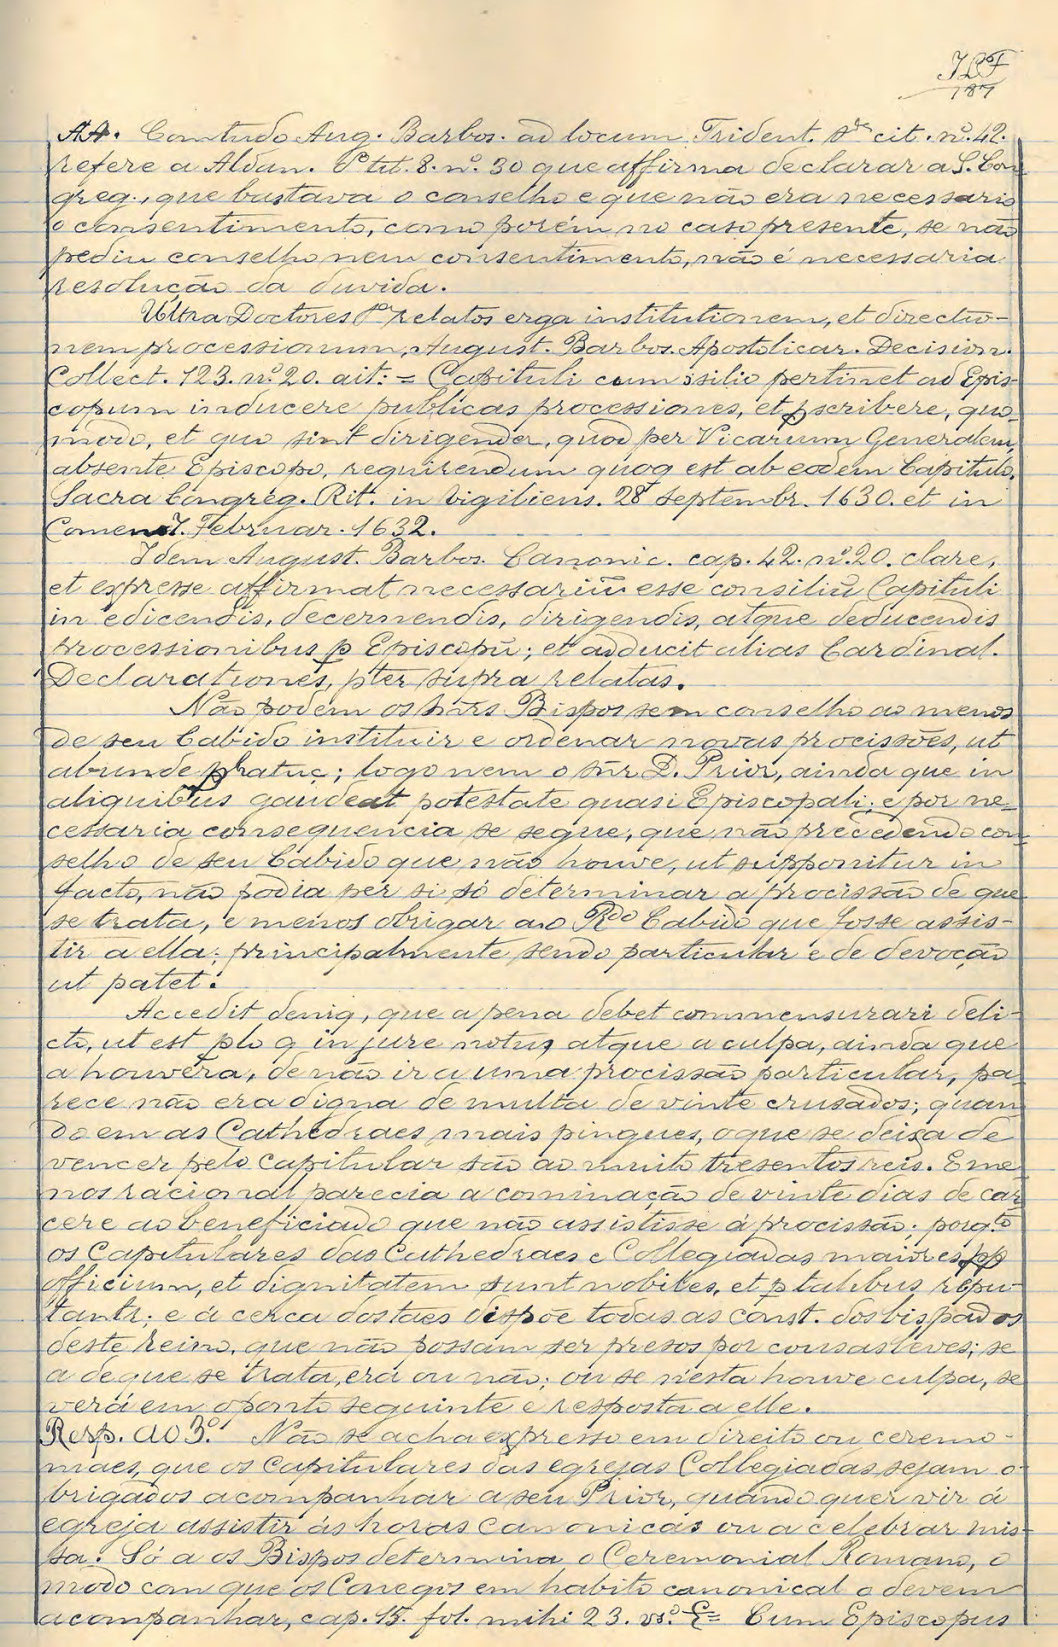 187
AA. Comtudo Aug. Barbos. ad locum Trident. cit. nº. 42.
refere a Aldan. tit. 8. nº. 30 que affirma declarar a S. Con
greg., que bastava o conselho e que não era necessario
o consentimento, como porém no caso presente, se não
pediu conselho nem consentimento, não é necessaria
resolução da duvida.
Ultra Doctores relatos erga institutionem, et directio-
nem processionum, August. Barbos. Apostolicar. Decision.
Collect. 123. nº. 20. ait: = Capituli cum silio pertinet ad Epis-
copum inducere publicas processiones, et pscribere, quo-
modo, et quo sint dirigendæ, quod per Vicarium Generalem,
absente Episcopo, requirendum quoq est ab eodem Capitulo.
Sacra Congreg. Rit. in Vigiliens. 28 Septembr. 1630. et in
Comen. 7. Februar. 1632.
Idem August. Barbos. Canonic. cap. 42. nº. 20. clare,
et expresse affirmat necessariũ esse consiliũ Capituli
in edicendis, decernendis, dirigendis, atque deducendis
processionibus p Episcopũ; et adducit alias Cardinal.
Declarationes, pter supra relatas.
Não podem os snrs Bispos sem conselho ao menos
de seu Cabido instituir e ordenar novas procissões, ut
abunde phatuç; logo nem o snr D. Prior, ainda que in
aliquibus gaudeat potestate quasi Episcopali; e por ne-
cessaria consequencia se segue, que não precedendo con-
selho de seu Cabido que não houve, ut supponitur in
facto, não podia per si só determinar a procissão de que
se trata, e menos obrigar ao Rdo Cabido que fosse assis-
tir a ella; principalmente sendo particular e de devoção
ut patet.
Accedit deniq, que a pena debet commensurari deli-
cto, ut est plo q in jure notuz atque a culpa, ainda que
a houvera, de não ir a uma procissão particular, pa-
rece não era digna de multa de vinte crusados; quan-
do em as Cathedraes mais pingues, o que se deixa de
vencer pelo capitular são ao muito tresentos reis. E me
nos racional parecia a cominação de vinte dias de car
cere ao beneficiado que não assistisse á procissão; porq.to
os Capitulares das Cathedraes e Collegiadas maiores pp
officium, et dignitatem sunt nobiles, et p talibus repu-
tantr; e á cerca dos taes dispõe todas as const. dos bispados
deste reino, que não possam ser presos por cousas leves; se
a de que se trata, era ou não; ou se n'esta houve culpa, se
verá em o ponto seguinte e resposta a elle.
Resp. ao 3º. Não se acha expresso em direito ou ceremo-
niaes, que os Capitulares das egrejas Collegiadas sejam o-
brigados acompanhar a seu Prior, quando quer vir á
egreja assistir ás horas canonicas ou a celebrar mis-
sa. Só a os Bispos determina o Ceremonial Romano, o
modo com que os Conegos em habito canonical o devem
acompanhar, cap. 15. fol. mihi 23. vsº. = Cum Episcopus